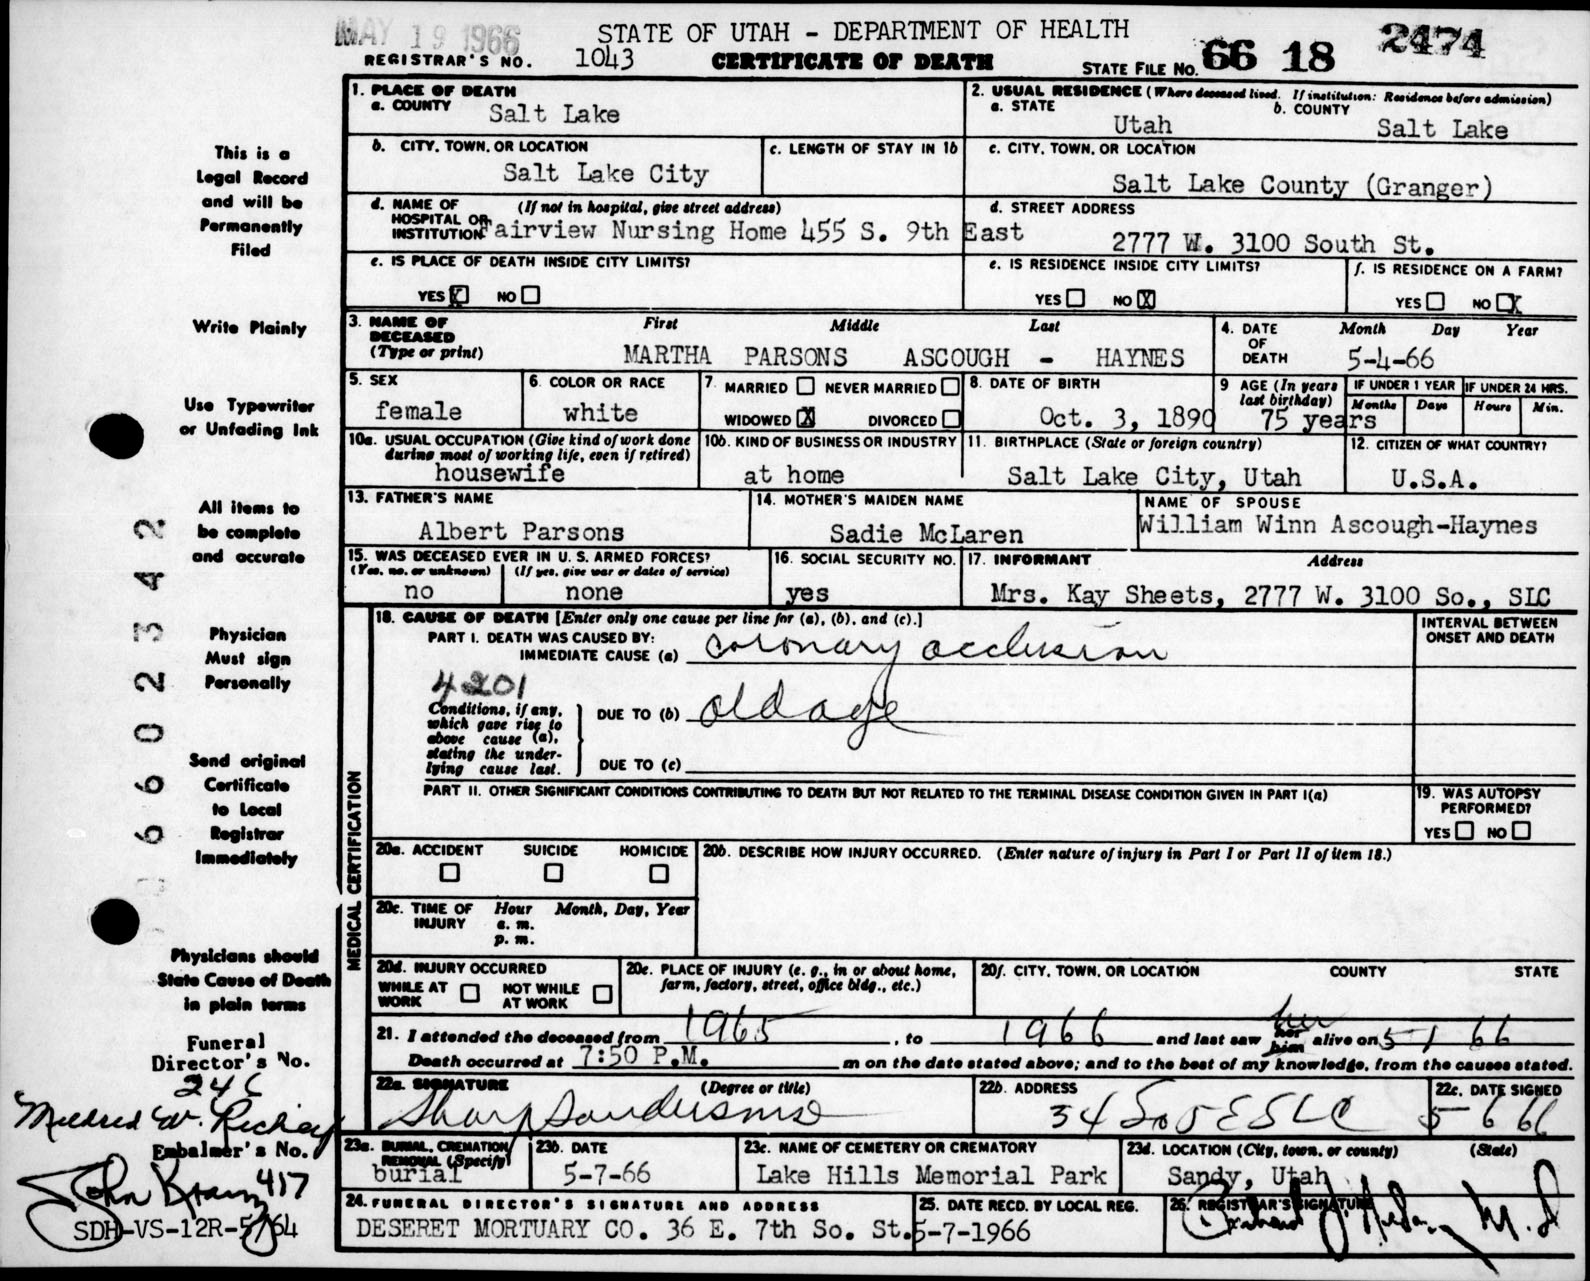 MAY 19 1966
STATE OF UTAH - DEPARTMENT OF HEALTH
REGISTRAR'S NO. 1043
CERTIFICATE OF DEATH
STATE FILE NO. 66 18 2474
This is a
Legal Record
and will be
Permanently
Filed
Write Plainly
Use Typewriter
or Unfading Ink
All items to
be complete
and accurate
Physician
Must sign
Personally
Send original
Certificate
to Local
Registrar
Immediately
Physicians should
State Cause of Death
in plain terms
Funeral
Director's No.
246
Mildred W.
Embalmer's No.
417
John
SDH-VS-12R-5/64
6602342
1. PLACE OF DEATH
a. COUNTY Salt Lake
2. USUAL RESIDENCE (Where deceased lived. If institution: Residence before admission)
a. STATE Utah
b. COUNTY Salt Lake
b. CITY, TOWN, OR LOCATION
Salt Lake City
c. LENGTH OF STAY IN 1b
c. CITY, TOWN, OR LOCATION
Salt Lake County (Granger)
d. NAME OF HOSPITAL OR INSTITUTION (If not in hospital, give street address)
Fairview Nursing Home 455 S. 9th East
d. STREET ADDRESS
2777 W. 3100 South St.
e. IS PLACE OF DEATH INSIDE CITY LIMITS?
YES X NO
e. IS RESIDENCE INSIDE CITY LIMITS?
YES NO X
f. IS RESIDENCE ON A FARM?
YES NO X
3. NAME OF DECEASED (Type or print)
First Middle Last
MARTHA PARSONS ASCOUGH - HAYNES
4. DATE OF DEATH
Month Day Year
5-4-66
5. SEX
female
6. COLOR OR RACE
white
7. MARRIED NEVER MARRIED
WIDOWED X DIVORCED
8. DATE OF BIRTH
Oct. 3, 1890
9 AGE (In years last birthday)
75 years
IF UNDER 1 YEAR
Months Days
IF UNDER 24 HRS.
Hours Min.
10a. USUAL OCCUPATION (Give kind of work done during most of working life, even if retired)
housewife
10b. KIND OF BUSINESS OR INDUSTRY
at home
11. BIRTHPLACE (State or foreign country)
Salt Lake City, Utah
12. CITIZEN OF WHAT COUNTRY?
U.S.A.
13. FATHER'S NAME
Albert Parsons
14. MOTHER'S MAIDEN NAME
Sadie McLaren
NAME OF SPOUSE
William Winn Ascough-Haynes
15. WAS DECEASED EVER IN U. S. ARMED FORCES?
(Yes, no, or unknown) (If yes, give war or dates of service)
no none
16. SOCIAL SECURITY NO.
yes
17. INFORMANT Address
Mrs. Kay Sheets, 2777 W. 3100 So., SLC
MEDICAL CERTIFICATION
18. CAUSE OF DEATH [Enter only one cause per line for (a), (b), and (c).]
PART I. DEATH WAS CAUSED BY:
IMMEDIATE CAUSE (a) coronary occlusion
INTERVAL BETWEEN ONSET AND DEATH
4201
Conditions, if any, which gave rise to above cause (a), stating the underlying cause last.
DUE TO (b) old age
DUE TO (c)
PART II. OTHER SIGNIFICANT CONDITIONS CONTRIBUTING TO DEATH BUT NOT RELATED TO THE TERMINAL DISEASE CONDITION GIVEN IN PART I(a)
19. WAS AUTOPSY PERFORMED?
YES NO
20a. ACCIDENT SUICIDE HOMICIDE
20b. DESCRIBE HOW INJURY OCCURRED. (Enter nature of injury in Part I or Part II of item 18.)
20c. TIME OF INJURY Hour Month, Day, Year
a. m.
p. m.
20d. INJURY OCCURRED
WHILE AT WORK NOT WHILE AT WORK
20e. PLACE OF INJURY (e. g., in or about home, farm, factory, street, office bldg., etc.)
20f. CITY, TOWN, OR LOCATION COUNTY STATE
21. I attended the deceased from 1965, to 1966 and last saw her him her alive on 5 1 66
Death occurred at 7:50 P.M. m on the date stated above; and to the best of my knowledge, from the causes stated.
22a. SIGNATURE (Degree or title)
22b. ADDRESS
22c. DATE SIGNED
5 6 66
23a. BURIAL, CREMATION REMOVAL (Specify)
burial
23b. DATE
5-7-66
23c. NAME OF CEMETERY OR CREMATORY
Lake Hills Memorial Park
23d. LOCATION (City, town, or county) (State)
Sandy, Utah
24. FUNERAL DIRECTOR'S SIGNATURE AND ADDRESS
DESERET MORTUARY CO. 36 E. 7th So. St.
25. DATE RECD. BY LOCAL REG.
5-7-1966
26. REGISTRAR'S SIGNATURE
M. D